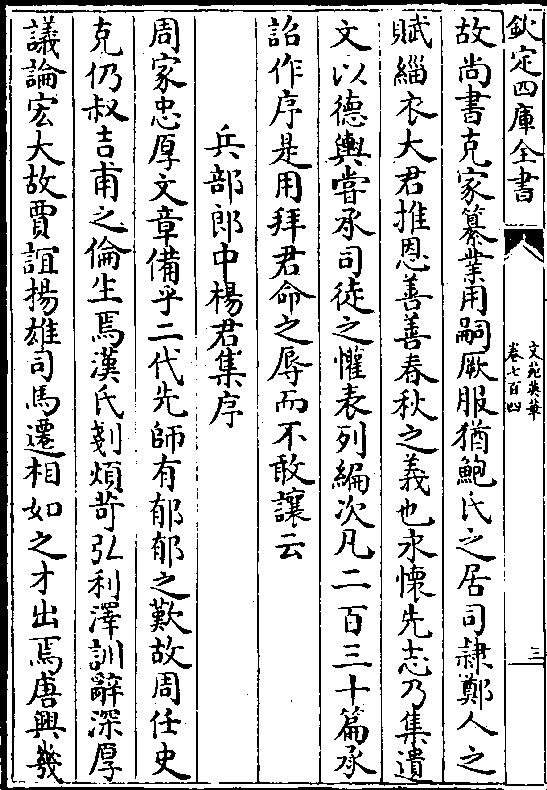 欽定四庫全書
文苑英華
卷七百四
三
故尚書克家纂業用嗣厥服猶鮑氏之居司隸鄭人之
賦緇衣大君推恩善善春秋之義也永懷先志乃集遺
文以德輿嘗承司徒之懽表列編次凡二百三十篇承
詔作序是用拜君命之辱而不敢讓云
兵部郎中楊君集序
周家忠厚文章備乎二代先師有郁郁之歎故周任史
克仍叔吉甫之倫生焉漢氏剗煩苛弘利澤訓辭深厚
議論宏大故賈誼揚雄司馬遷相如之才出焉唐興幾